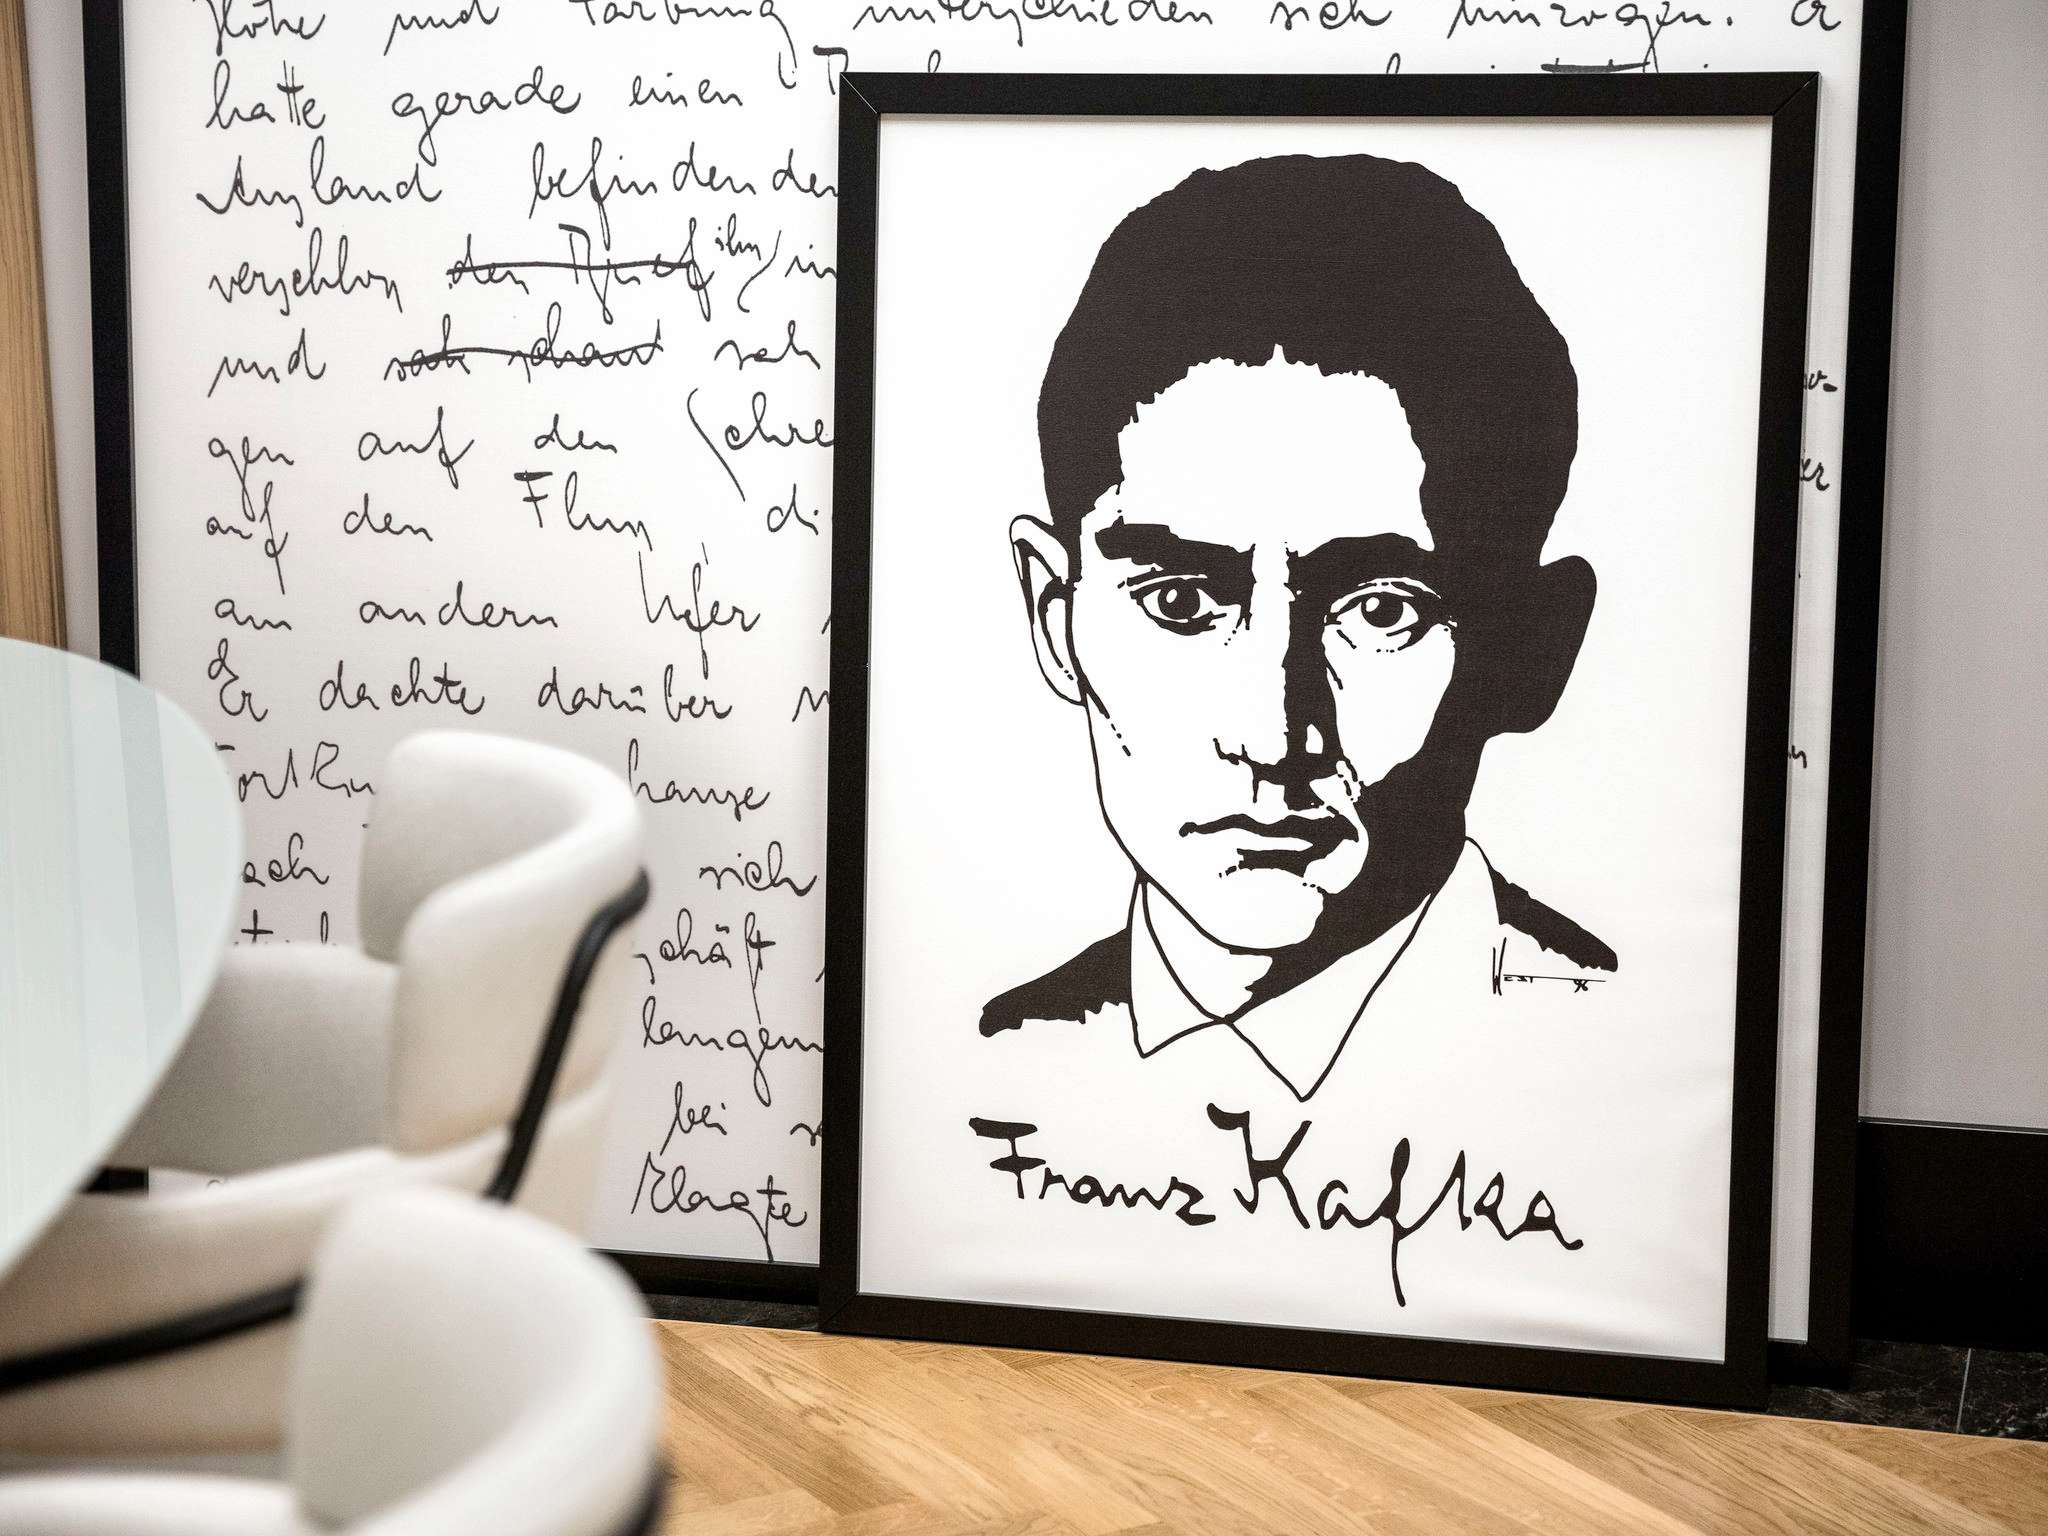 Höhe und Färbung unterschieden sich hinzogen. Er
hatte gerade einen
Ausland befindenden
verschloss den Brief ihn in
und sah schaut sah
gen auf den Schre
auf den Fluss di
am andern Ufer
Er dachte darüber
hause
sich
schäft
langem
bei
klagte
Franz Kafka
West 96